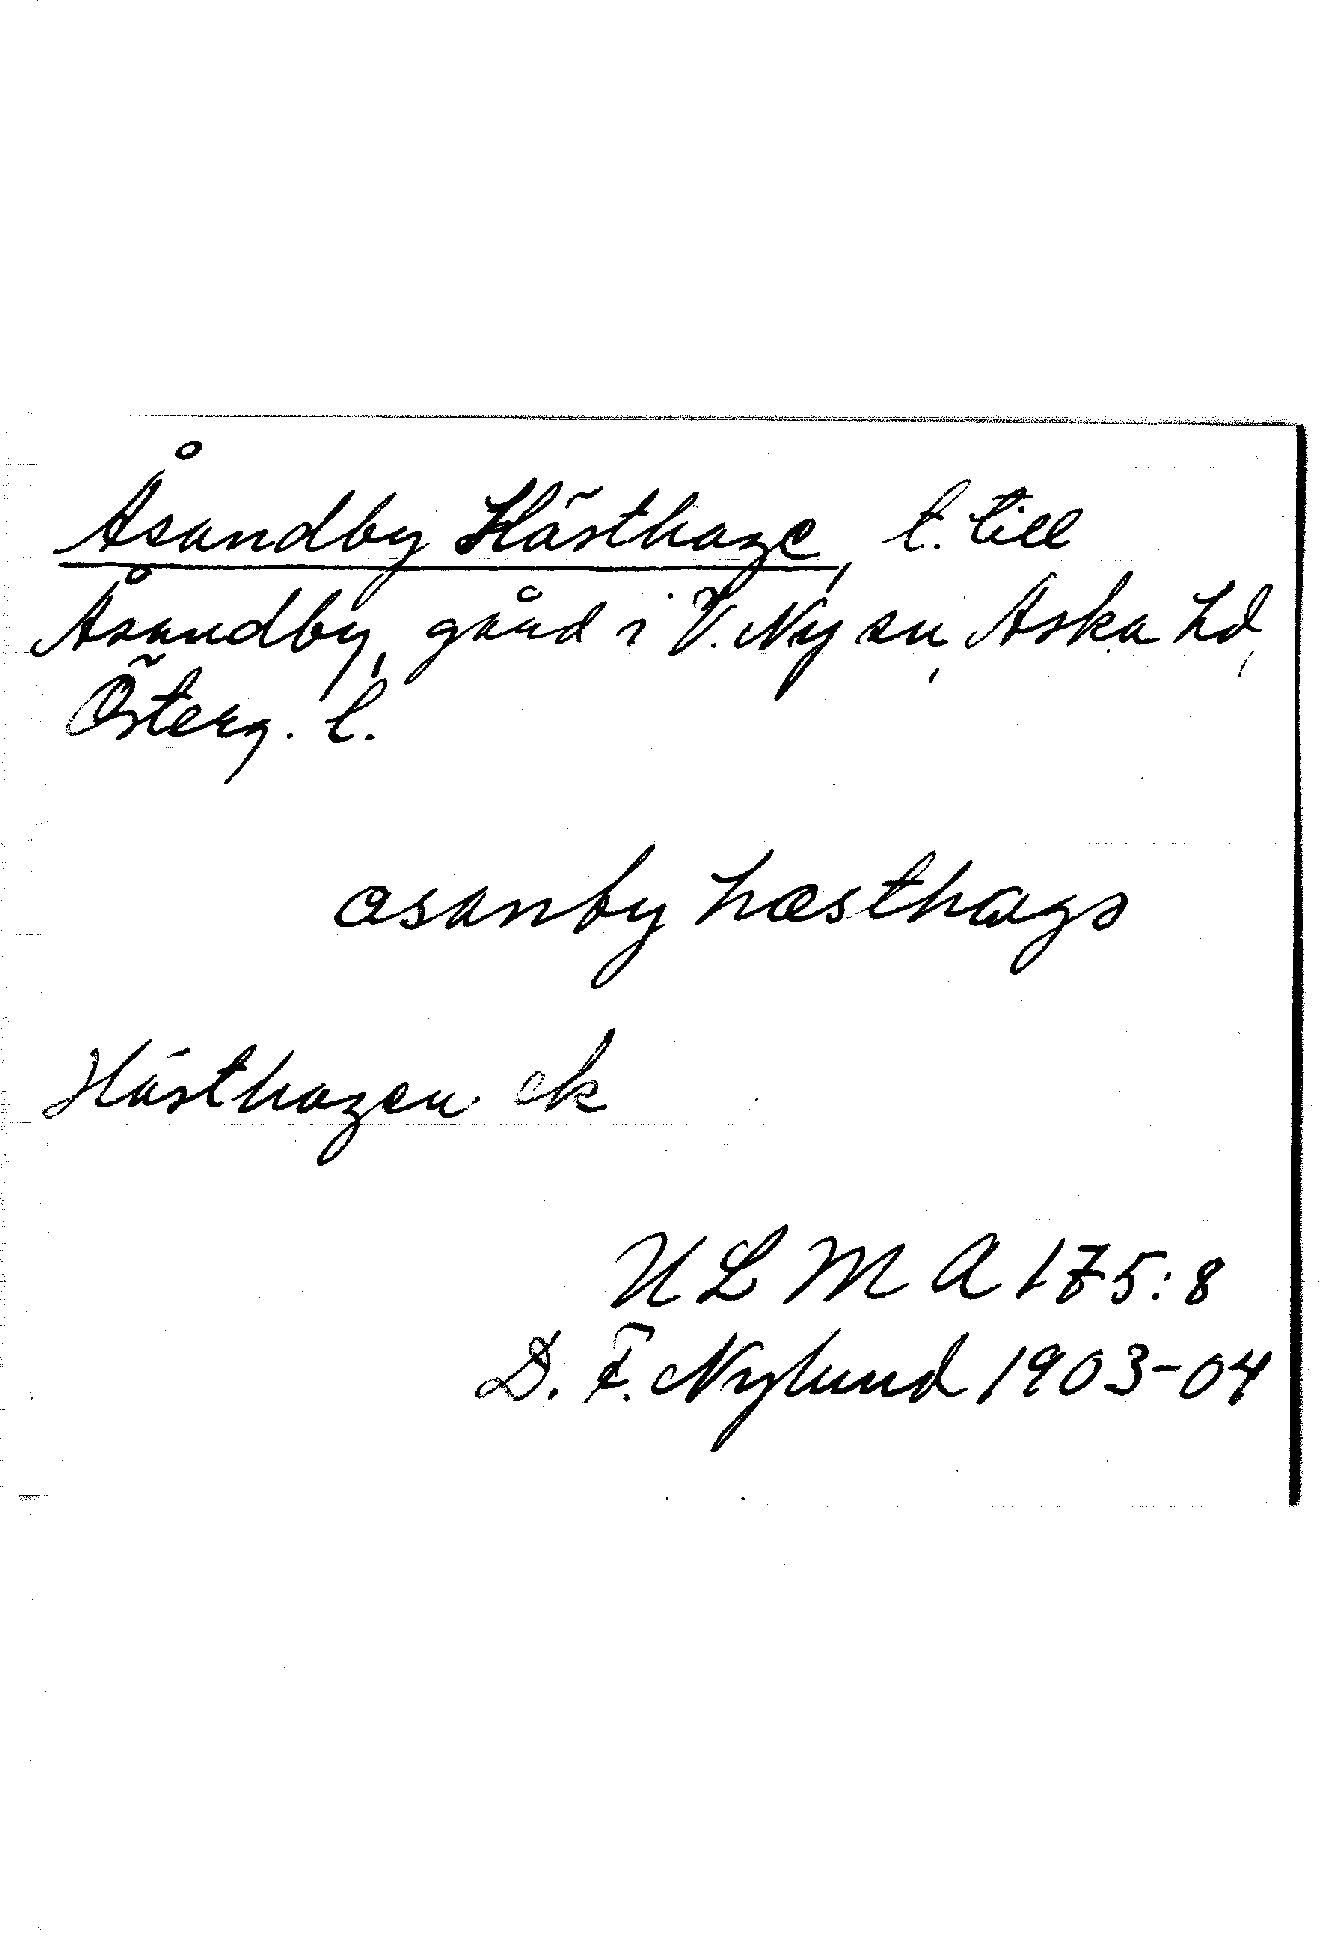 Åsandby Hästhage, t. till
Åsandby, gård i V. Ny sn, Aska hd,
Österg. l.
osanby hæsthags
Hästhagen ek
ULMA 175:8
D. F. Nylund 1903-04